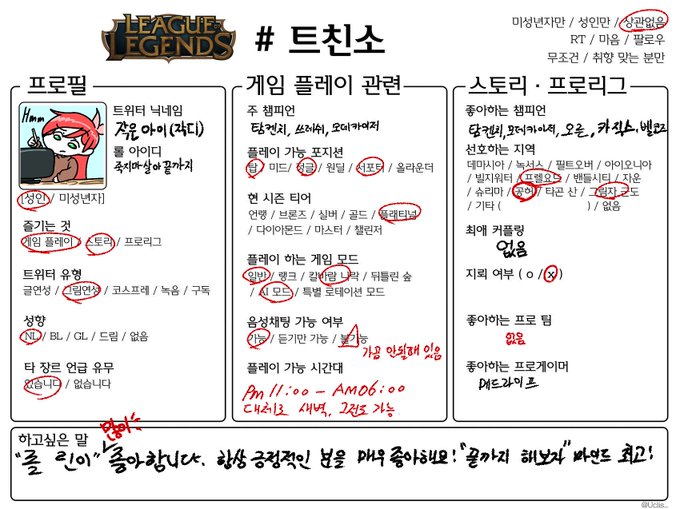 LEAGUE OF LEGENDS
# 트친소
미성년자만 / 성인만 / 상관없음
RT / 마음 / 팔로우
무조건 / 취향 맞는 분만
프로필
Hmm
트위터 닉네임
작은아이(작디)
롤 아이디
죽지마살아끝까지
[성인 / 미성년자]
즐기는 것
게임 플레이 / 스토리 / 프로리그
트위터 유형
글연성 / 그림연성 / 코스프레 / 녹음 / 구독
성향
NL / BL / GL / 드림 / 없음
타 장르 언급 유무
있습니다 / 없습니다
게임 플레이 관련
주 챔피언
탐켄치, 쓰레쉬, 모데카이저
플레이 가능 포지션
탑 / 미드 / 정글 / 원딜 / 서포터 / 올라운더
현 시즌 티어
언랭 / 브론즈 / 실버 / 골드 / 플래티넘
/ 다이아몬드 / 마스터 / 챌린저
플레이 하는 게임 모드
일반 / 랭크 / 칼바람 나락 / 뒤틀린 숲
/ AI 모드 / 특별 로테이션 모드
음성채팅 가능 여부
가능 / 듣기만 가능 / 불가능
가끔 안될때 있음
플레이 가능 시간대
Pm 11:00 - AM 06:00
대체로 새벽, 그전도 가능
스토리 · 프로리그
좋아하는 챔피언
탐켄치, 모데카이저, 오른, 카직스, 벨코즈
선호하는 지역
데마시아 / 녹서스 / 필트오버 / 아이오니아
/ 빌지워터 / 프렐요드 / 밴들시티 / 자운
/ 슈리마 / 공허 / 타곤 산 / 그림자 군도
/ 기타 ( ) / 없음
최애 커플링
없음
지뢰 여부 ( o / x )
좋아하는 프로 팀
없음
좋아하는 프로게이머
매드라이프
하고싶은 말
많이
"롤 린이" 좋아합니다. 항상 긍정적인 분을 매우 좋아해요! "끝까지 해보자" 마인드 최고!